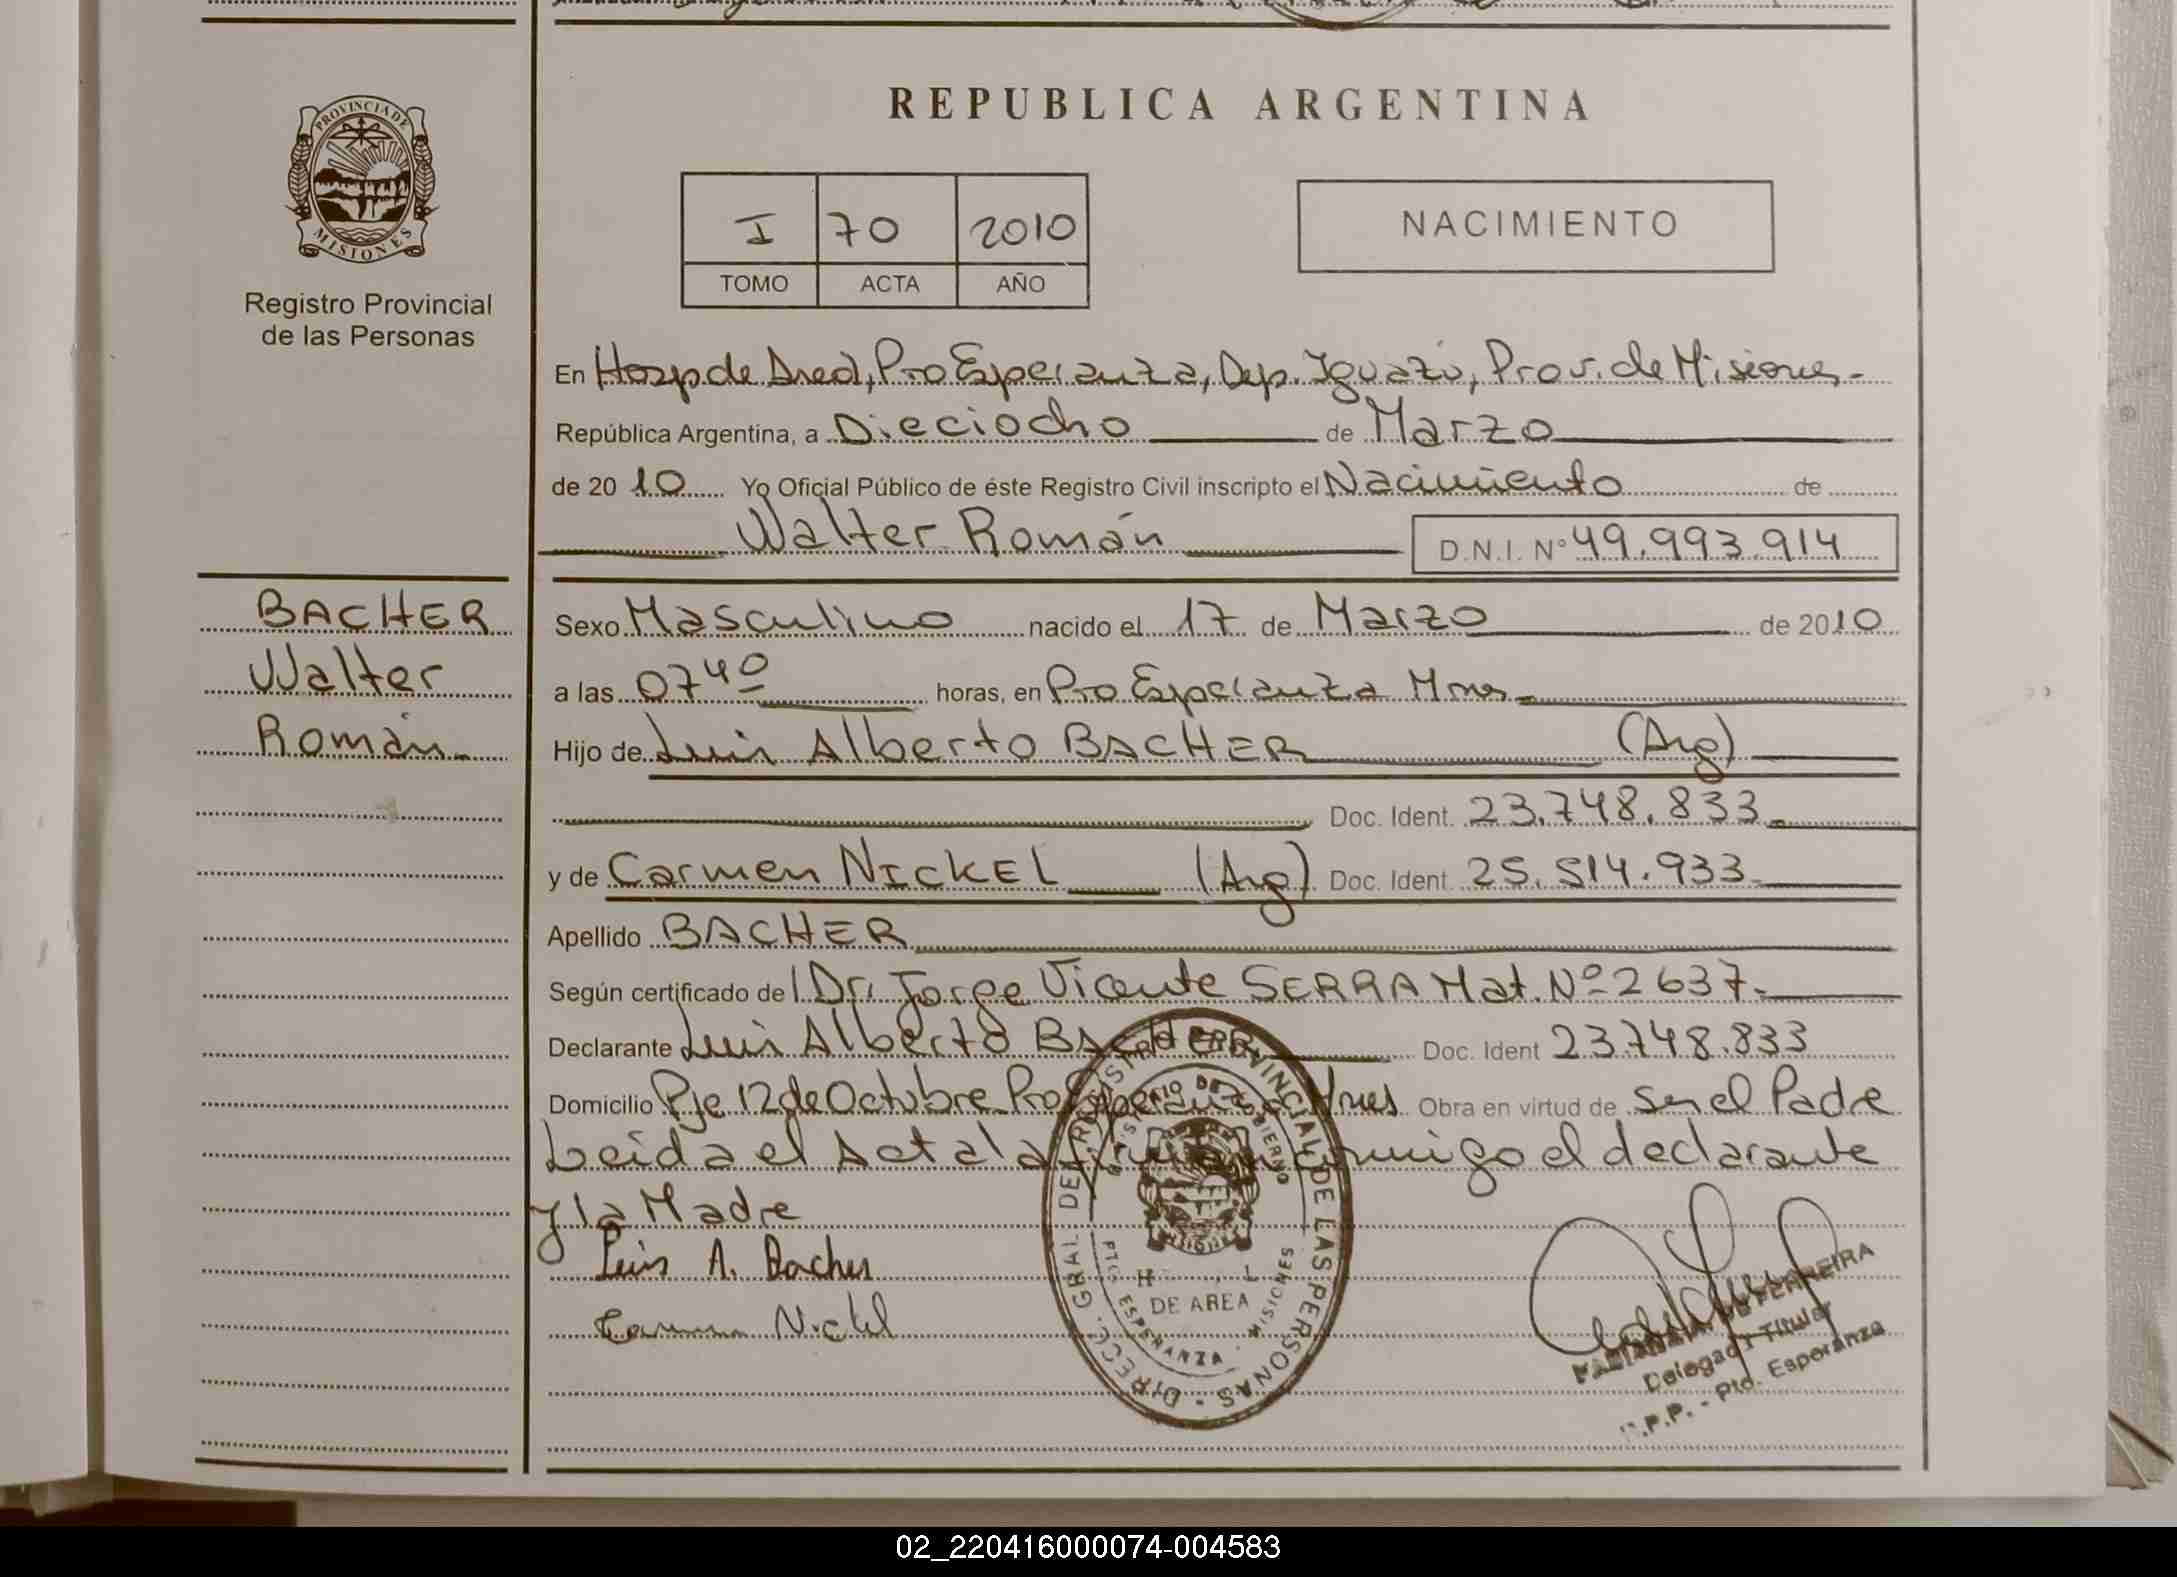 PROVINCIA DE
MISIONES
Registro Provincial
de las Personas
REPUBLICA ARGENTINA
I 70 2010
TOMO ACTA AÑO
NACIMIENTO
En Hosp de Area, Pto Esperanza, Dep. Iguazú, Prov. de Misiones.-
República Argentina, a Dieciocho de Marzo
de 2010 Yo Oficial Público de éste Registro Civil inscripto el Nacimiento de
Walter Román D.N.I. Nº 49.993.914
BACHER
Walter
Román.-
Sexo Masculino nacido el 17 de Marzo de 2010
a las 07 40 horas, en Pto Esperanza Mnes.-
Hijo de Luis Alberto BACHER (Arg)
Doc. Ident. 23.748.833.-
y de Carmen NICKEL (Arg) Doc. Ident. 25.514.933.-
Apellido BACHER
Según certificado del Dr. Jorge Vicente SERRA Mat. Nº 2637.-
Declarante Luis Alberto BACHER Doc. Ident 23748.833
Domicilio Pje 12 de Octubre Pto Esperanza Mnes Obra en virtud de ser el Padre
Leida el Acta la firman conmigo el declarante
y la Madre
Luis A. Bacher
Carmen Nickel
DIREC. GRAL. DEL REGISTRO PROVINCIAL DE LAS PERSONAS
MINISTERIO DE GOBIERNO
DE AREA
PTO. ESPERANZA - MISIONES
DE PEREIRA
Delegada Titular
R.P.P. - Pto. Esperanza
02_220416000074-004583